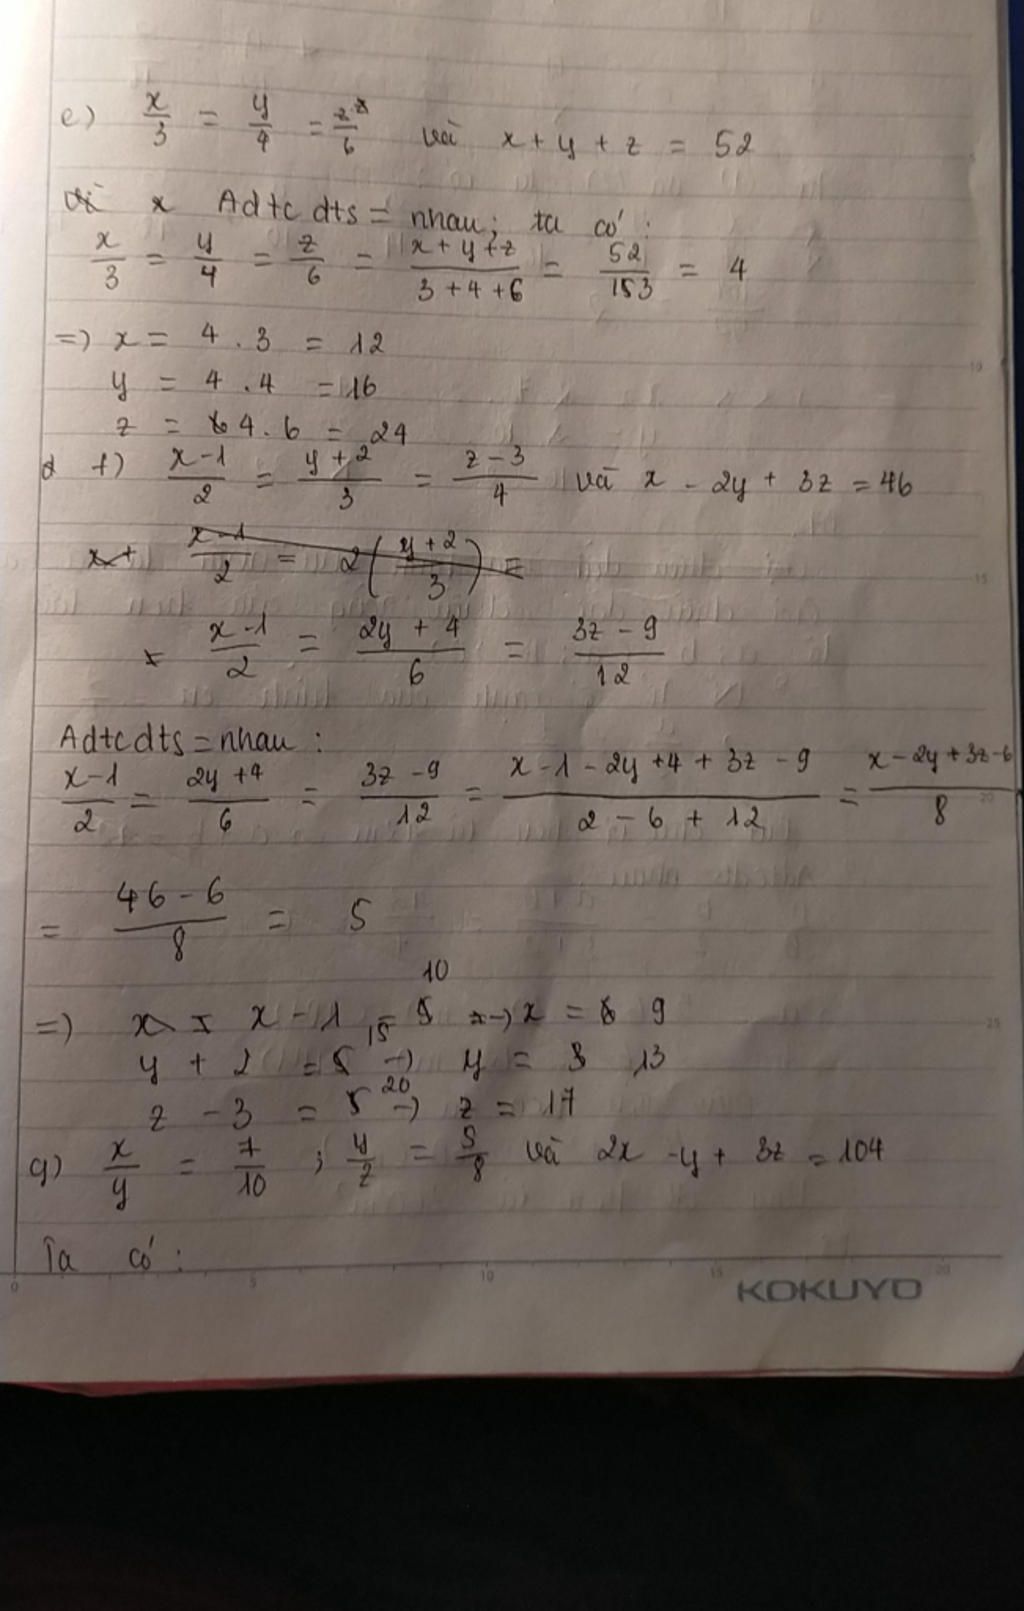 e) x/3 = y/4 = z/6 và x + y + z = 52
Adtc dts = nhau; ta có:
x/3 = y/4 = z/6 = (x + y + z)/(3 + 4 + 6) = 52/153 = 4
=) x = 4 . 3 = 12
y = 4 . 4 = 16
z = 4 . 6 = 24
f) (x-1)/2 = (y+2)/3 = (z-3)/4 và x - 2y + 3z = 46
(x-1)/2 = 2((y+2)/3) =
(x-1)/2 = (2y + 4)/6 = (3z - 9)/12
Adtcdts = nhau :
(x-1)/2 = (2y+4)/6 = (3z-9)/12 = (x-1-2y+4+3z-9)/(2-6+12) = (x-2y+3z-6)/8
= (46-6)/8 = 5
=) x - 1 = 10 -) x = 9
y + 2 = 15 -) y = 13
z - 3 = 20 -) z = 17
g) x/y = 7/10 ; y/z = 5/8 và 2x - y + 3z = 104
Ta có :
0 5 10 15 20
KOKUYO